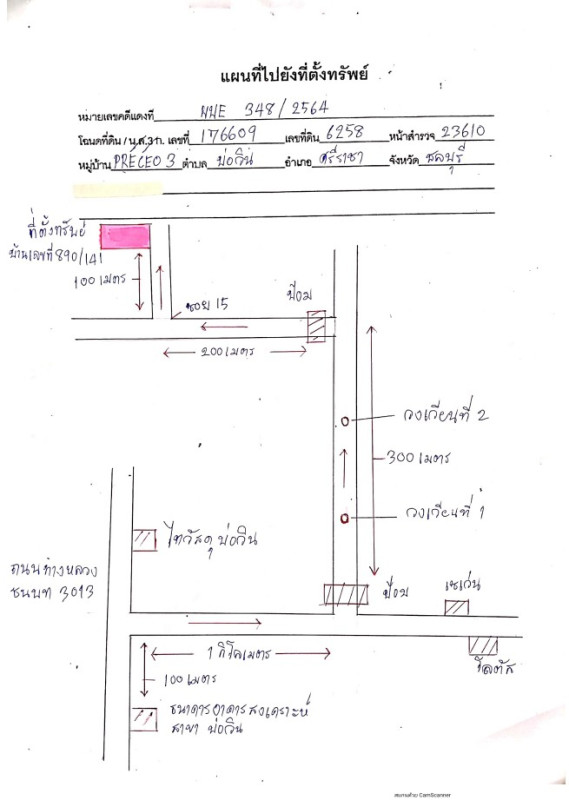 แผนที่ไปยังที่ตั้งทรัพย์
หมายเลขคดีแดงที่ ผบE 348/2564
โฉนดที่ดิน/น.ส.3ก. เลขที่ 176609 เลขที่ดิน 6258 หน้าสำรวจ 23610
หมู่บ้าน PRECEO 3 ตำบล บ่อวิน อำเภอ ศรีราชา จังหวัด ชลบุรี
ที่ตั้งทรัพย์
บ้านเลขที่ 890/141
100 เมตร
ซอย 15
ป้อม
200 เมตร
วงเวียนที่ 2
300 เมตร
วงเวียนที่ 1
ไทวัสดุ บ่อวิน
ถนนทางหลวง
ชนบท 3013
ป้อม
เซเว่น
1 กิโลเมตร
โลตัส
100 เมตร
ธนาคารอาคารสงเคราะห์
สาขา บ่อวิน
สแกนด้วย CamScanner